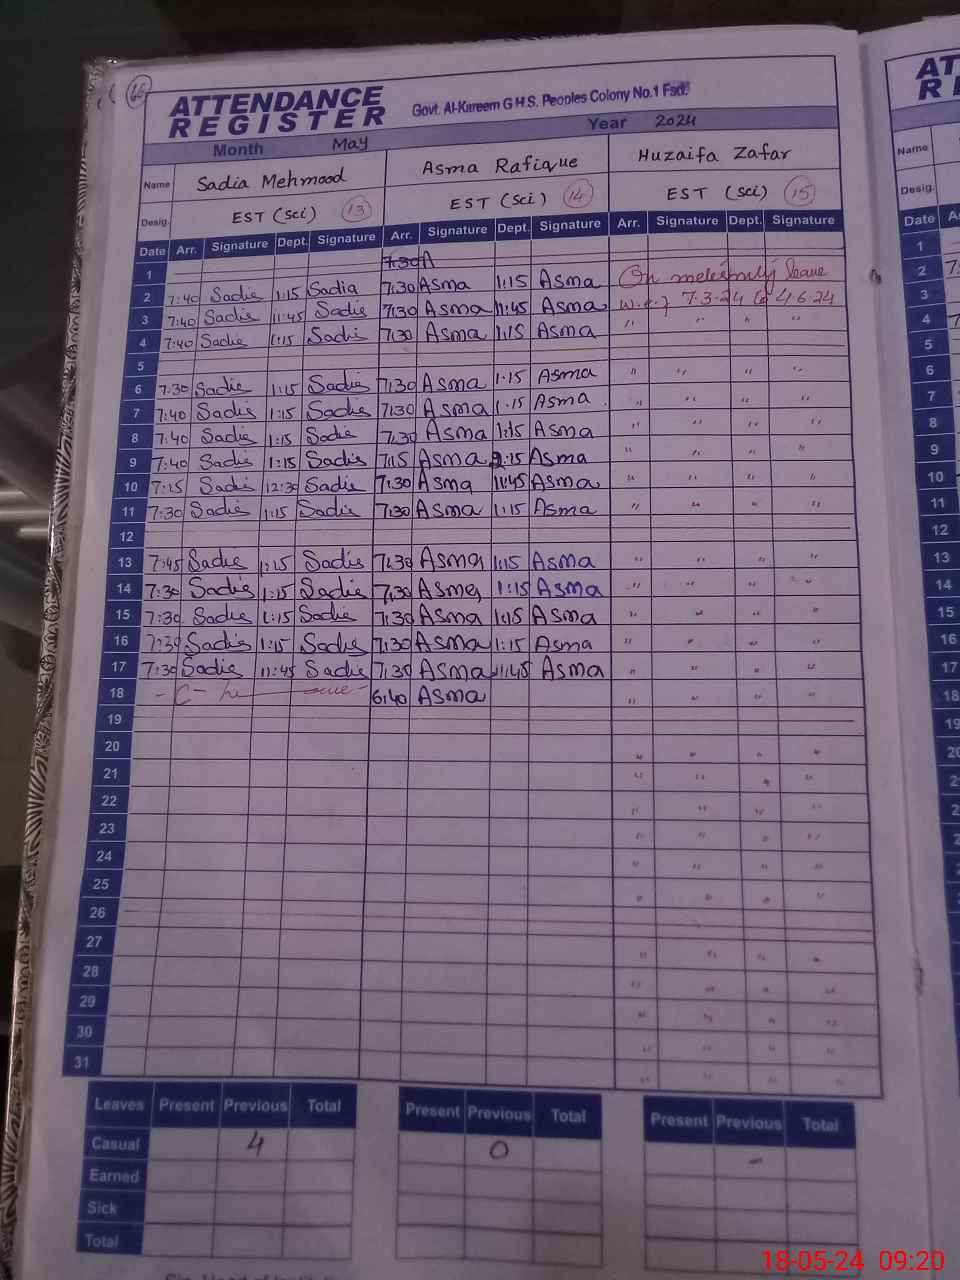 66
ATTENDANCE REGISTER
Govt. Al-Kareem G.H.S. Peoples Colony No.1 Fsd.
Month May Year 2024
Name Sadia Mehmood Asma Rafique Huzaifa Zafar
Desig. EST (Sci) 13 EST (Sci) 14 EST (Sci) 15
Date Arr. Signature Dept. Signature Arr. Signature Dept. Signature Arr. Signature Dept. Signature
1 7:30 A
2 7:40 Sadie 1:15 Sadia 7:30 Asma 1:15 Asma On leave
3 7:40 Sadie 11:45 Sadie 7:30 Asma 11:45 Asma w.e.f 7.3.24 to 4.6.24
4 7:40 Sadie 1:15 Sadie 7:30 Asma 1:15 Asma " " " "
5
6 7:30 Sadie 1:15 Sadie 7:30 Asma 1:15 Asma " " " "
7 7:40 Sadie 1:15 Sadie 7:30 Asma 1:15 Asma " " " "
8 7:40 Sadie 1:15 Sadie 7:30 Asma 1:15 Asma " " " "
9 7:40 Sadie 1:15 Sadie 7:15 Asma :15 Asma " " " "
10 7:15 Sadie 12:30 Sadie 7:30 Asma 11:45 Asma " " " "
11 7:30 Sadie 1:15 Sadie 7:30 Asma 1:15 Asma " " " "
12
13 7:45 Sadie 1:15 Sadie 7:30 Asma 1:15 Asma " " " "
14 7:30 Sadie 1:15 Sadie 7:30 Asma 1:15 Asma " " " "
15 7:30 Sadie 1:15 Sadie 7:30 Asma 1:15 Asma " " " "
16 7:30 Sadie 1:15 Sadie 7:30 Asma 1:15 Asma " " " "
17 7:30 Sadie 11:45 Sadie 7:30 Asma 11:45 Asma " " " "
18 - C - 6:40 Asma " " " "
19
20 " " " "
21 " " " "
22 " " " "
23 " " " "
24 " " " "
25 " " " "
26
27 " " " "
28 " " " "
29 " " " "
30 " " " "
31 " " " "
Leaves Present Previous Total Present Previous Total Present Previous Total
Casual 4 0 -
Earned
Sick
Total
18-05-24 09:20
AT
RE
Name
Desig.
Date A
1
2 7
3
4 7
5
6
7
8
9
10
11
12
13
14
15
16
17
18
19
20